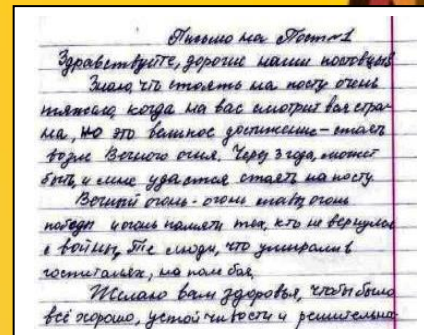 Письмо на Пост №1
Здравствуйте, дорогие наши постовцы!
Знаю, что стоять на посту очень
тяжело, когда на вас смотрит вся стра-
на, но это великое достижение - стоять
возле Вечного огня. Через 3 года, может
быть, и мне удастся стоять на посту.
Вечный огонь - огонь славы, огонь
победы и огонь памяти тех, кто не вернулся
с войны, те люди, что умирали в
госпиталях, на поле боя.
Желаю вам здоровья, чтобы было
всё хорошо, устойчивости и решительно